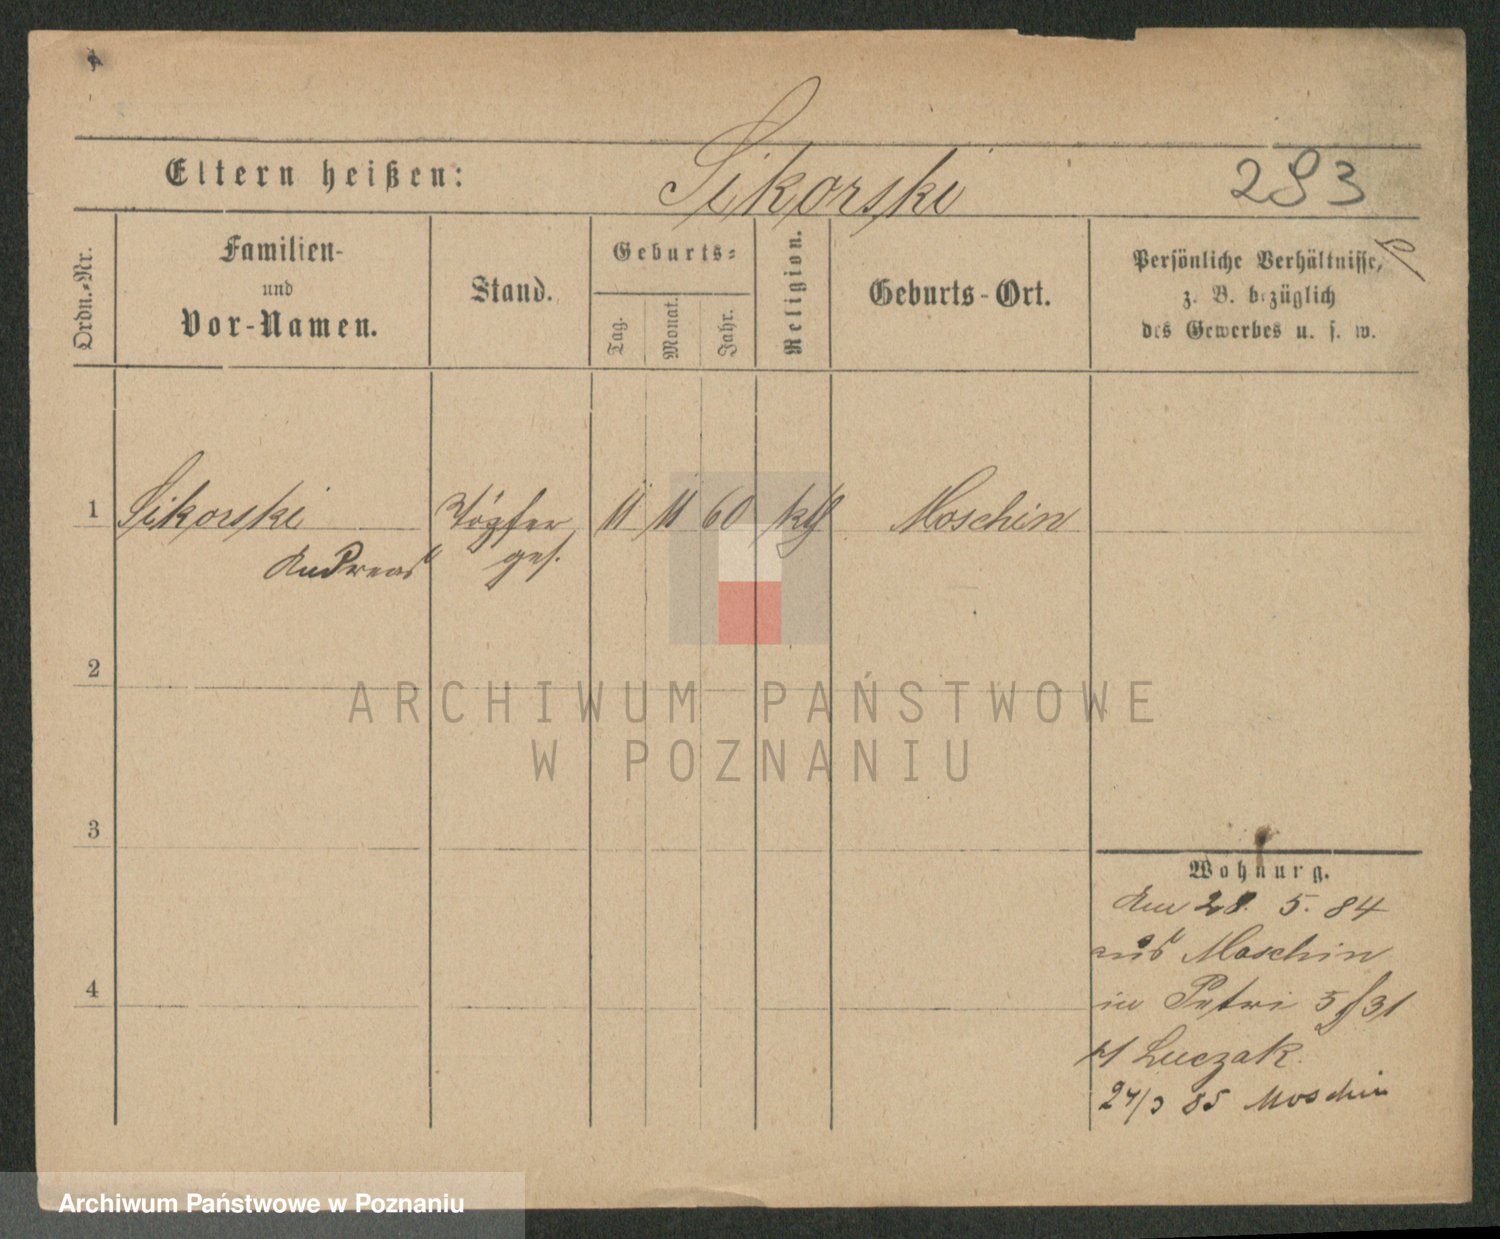 Eltern heißen: Sikorski 293
Ordn.-Nr.
Familien-
und
Vor-Namen.
Stand.
Geburts-
Tag.
Monat.
Jahr.
Religion.
Geburts-Ort.
Persönliche Verhältnisse,
z. B. bezüglich
des Gewerbes u. s. w.
1 Sikorski Töpfer 11 11 60 kth Moschin
Andreas ges.
2
3
4
Wohnung.
Am 28. 5. 84
aus Moschin
in Petri 5
Luczak
24/3 85 Moschin
ARCHIWUM PAŃSTWOWE
W POZNANIU
Archiwum Państwowe w Poznaniu